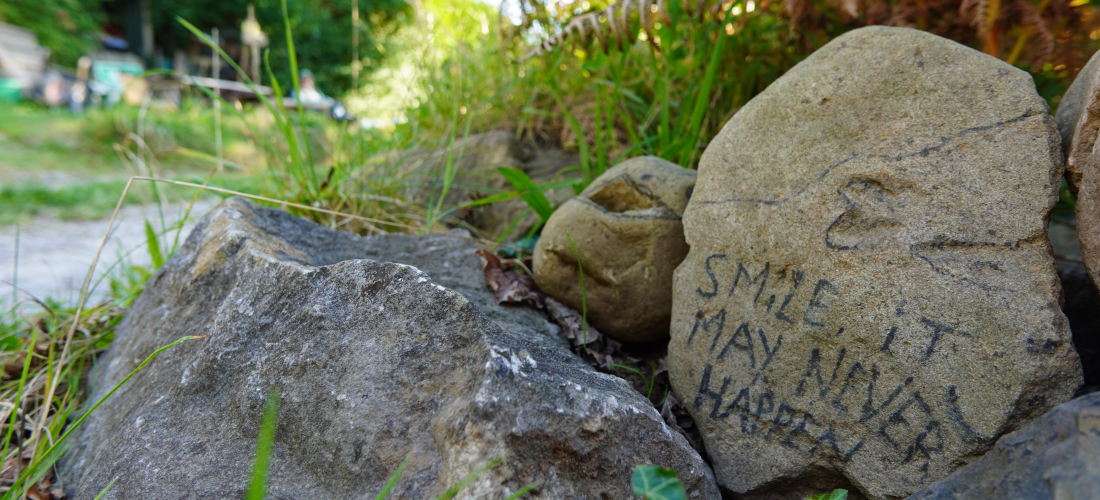 SMiLE, iT
MAY NEVER
HAPPEN